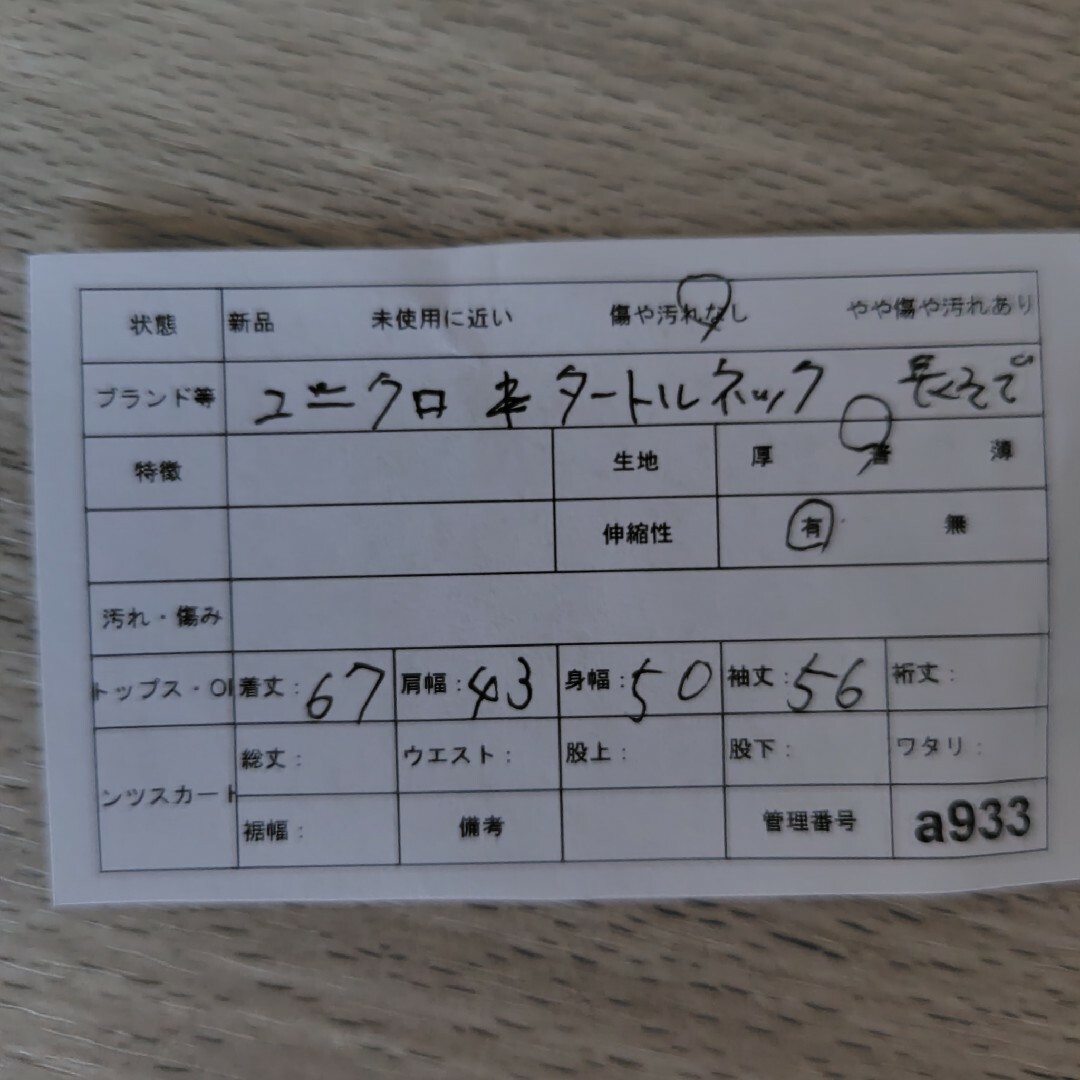 状態 新品 未使用に近い 傷や汚れなし やや傷や汚れあり
ブランド等 ユニクロ タートルネック 長そで
特徴 生地 厚 普 薄
伸縮性 有 無
汚れ・傷み
トップス・OP 着丈:67 肩幅:43 身幅:50 袖丈:56 裄丈:
ンツスカート 総丈: ウエスト: 股上: 股下: ワタリ:
裾幅: 備考 管理番号 a933